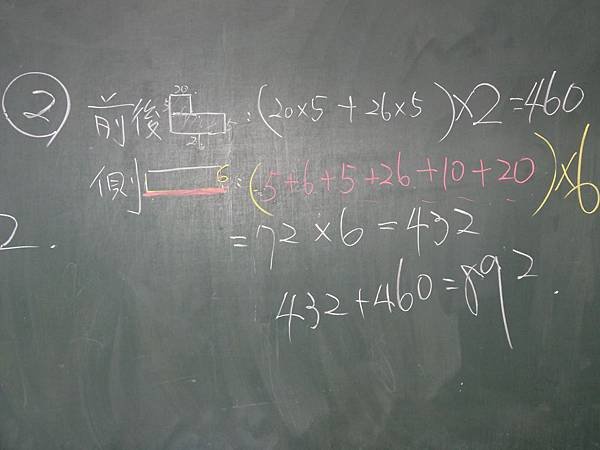 ② 前後 20 5 5 26 : (20×5 + 26×5) ×2 = 460
側 6 : (5+6+5+26+10+20) ×6
2. = 72 × 6 = 432
432 + 460 = 892.